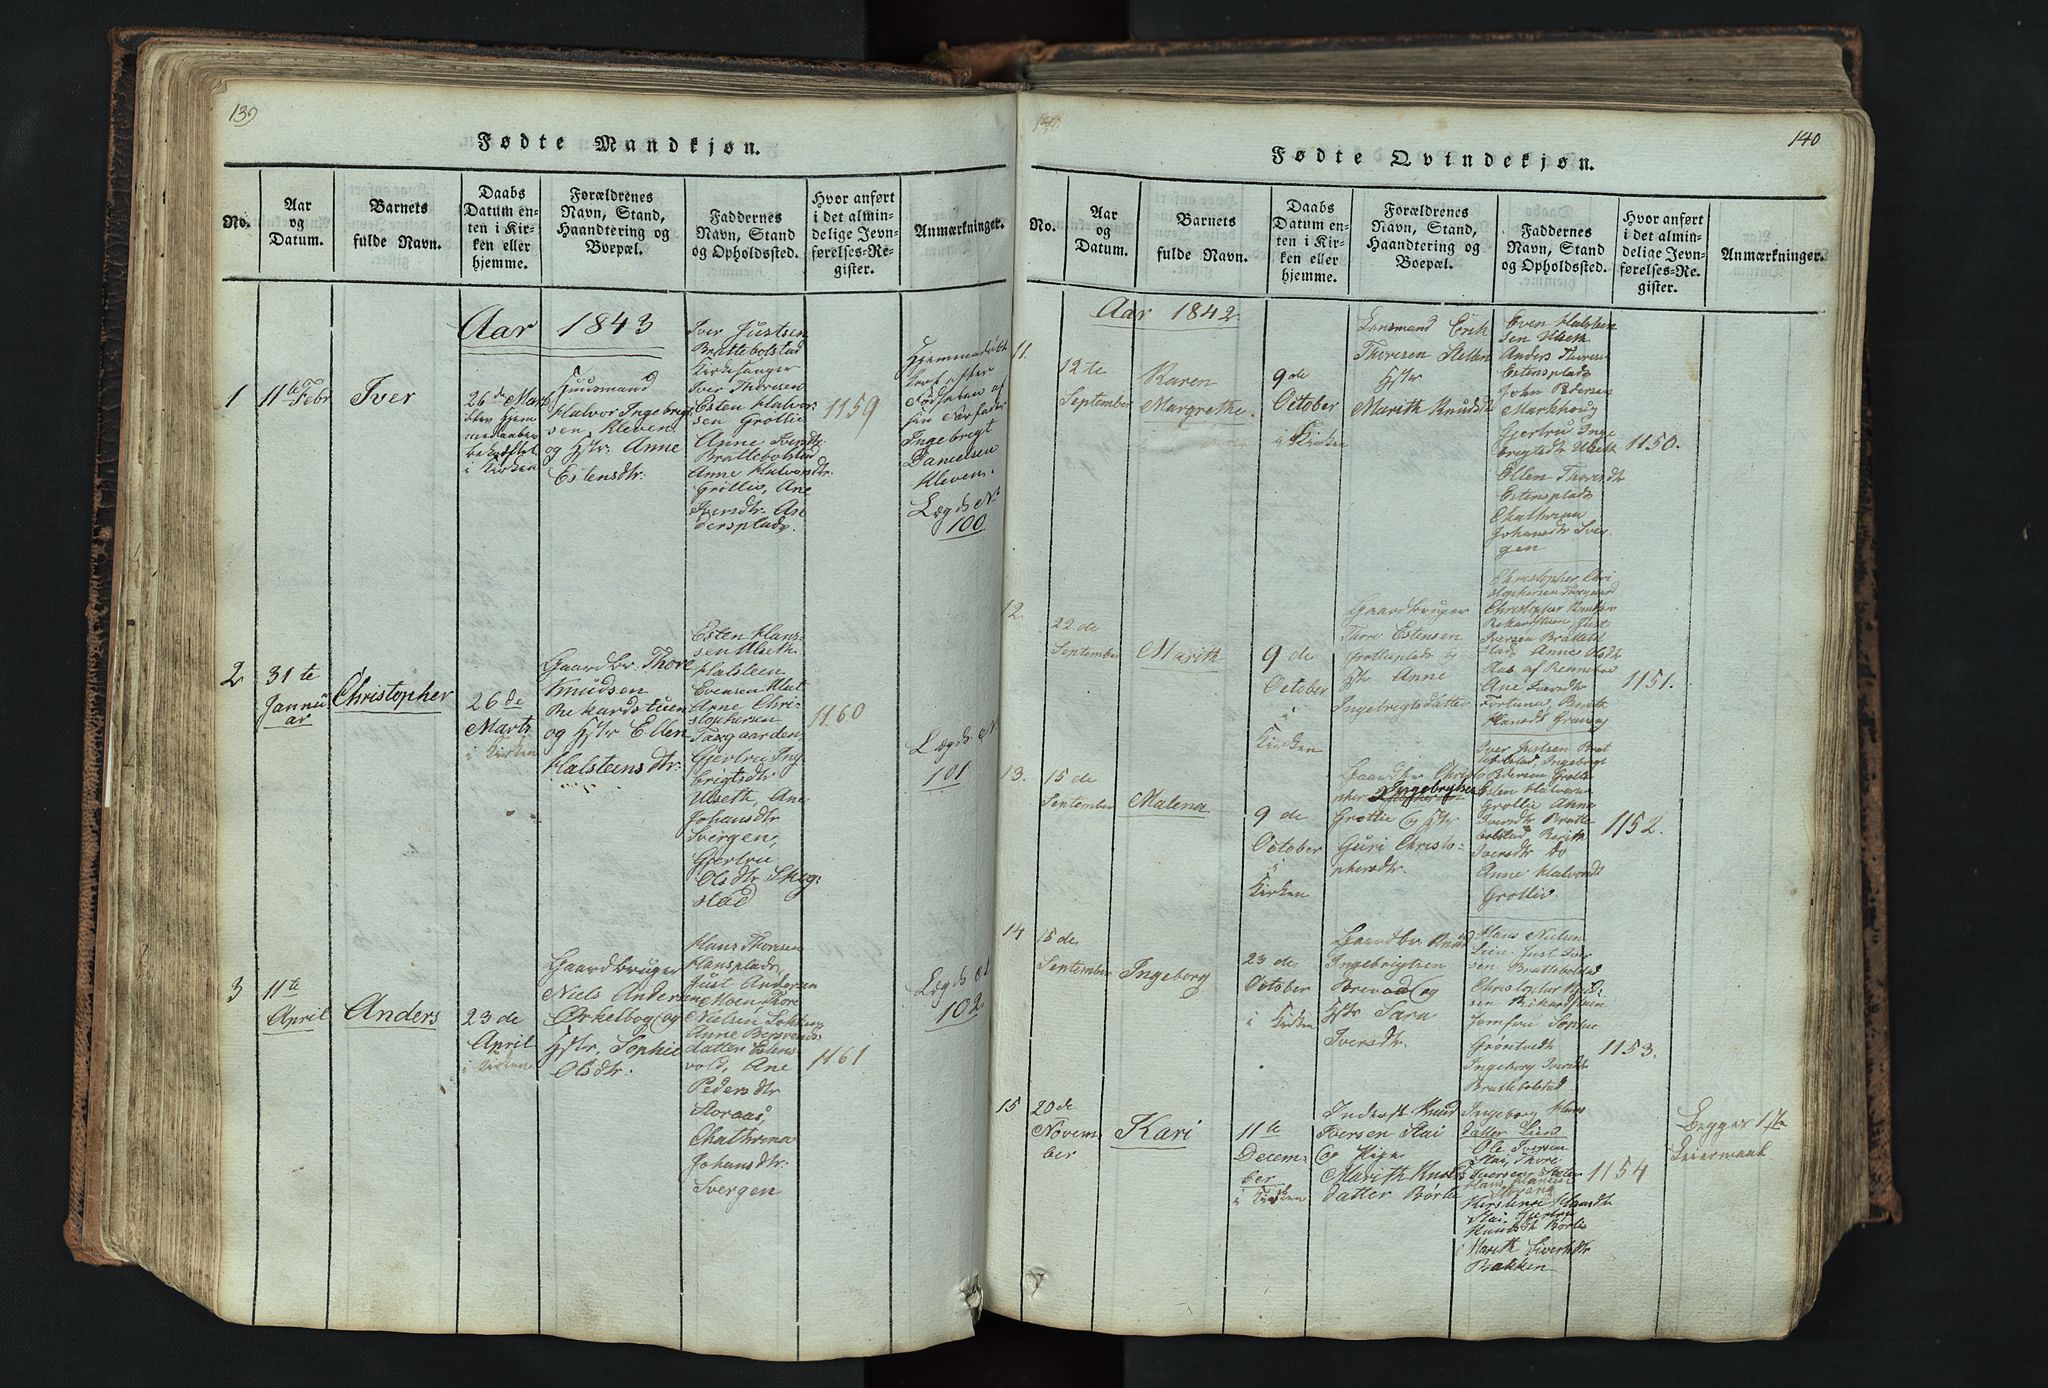 139
Fødte Mandkjøn.
No.
Aar
og
Datum.
Barnets
fulde Navn.
Daabs
Datum en-
ten i Kir-
ken eller
hjemme.
Forældrenes
Navn, Stand,
Haandtering og
Boepæl.
Faddernes
Navn, Stand
og Opholdssted.
Hvor anført
i det almin-
delige Jevn-
førelses-Re-
gister.
Anmærkninger.
Aar 1843
1
11te Febr
Iver
26de Marts
i Kirken
Huusmand
Halvor Ingebrigt
sen Kleven
og Hstr: Anne
Estensdtr:
Iver Justsen
Brattebolstad
Kirkesanger
Iver Thoresen
Esten Halvor
sen Grotlie
Anne Iversdtr:
Brattebolstad
Anne Halvorsdtr:
Grotlie, Ane
Iversdtr: An
dersplads.
1159
Hjemmedøbt
Ingebrigt
Danielsen
Kleven.
Lægds No
100
2
31te
Januu
ar
Christopher
26de
Marts
i Kirken
Gaardbr Thore
Knudsen
Rekardstuen
og Hstr Ellen
Halsteensdtr:
Esten Hans-
sen Ulseth
Halsteen
Evensen Ulset
Arne Chri-
stophersen
Taxgaarden
Gjertru Ing
brigtsdtr
Ulseth, Ane
Johansdtr
Svergen,
Gjertru
Olsdtr Skog-
stad
1160
Lægds No
101
3
11te
April
Anders
23de
April
i Kirken
Gaardbruger
Niels Andersen
Orkelbog og
Hstr, Sophie
Olsdtr:
Hans Thoresen
Hanspladr,
Just Andersen
Moen Thore
Nielsen
Anne
datter
vold, Ane
Pedersdtr
Storaas,
Chathrina
Johansdtr:
Svergen
1161
Lægds No
102
140
Fødte Qvindekjøn.
No.
Aar
og
Datum.
Barnets
fulde Navn.
Daabs
Datum en-
ten i Kir-
ken eller
hjemme.
Forældrenes
Navn, Stand,
Haandtering og
Boepæl.
Faddernes
Navn, Stand
og Opholdssted.
Hvor anført
i det almin-
delige Jevn-
førelses-Re-
gister.
Anmærkninger.
Aar 1842.
11.
12te
September
Karen
Margrethe.
9de
October
i Kirken
Lensmand Erik
Thoresen Stellen
Hstr
Marith Knudsdtr
Even Halsteen
sen Ulseth
Anders Thorese
Estensplads
John Pedersen
Markhoug
Gjertru Inge
brigtsdtr Ulseth
Ellen Thoresdtr
Estensplads
Chathrina
Johansdtr Sver-
gen
1150.
12.
22.de
September
Marith
9de
October
i
Kirken
Gaardbruger
Thore Estensen
Grotlieplads og
Hstr Anne
Ingebrigtsdatter
Christopher Chri
stophersen Taxgaard
Christopher
Rekardstuen, Just
Iversen Brattebol
stad, Anne Olsdtr
Aas af Rennebo
Ane Iversdtr
Fortuna, Berith
Hansdtr
1151.
13.
15de
September
Malena
9de
October
i
Kirken
Gaardbr Christo
pher Ingebrigtsen
Grotlie og Hstr
Guri Christo-
phersdtr.
Iver Justsen Brat
tebolstad, Ingebrigt
Pedersen Grotlie
Esten Halvorsen
Grotlie Anne
Iversdtr Bratte
bolstad Berith
Iversdtr do
Anne Halvorsdtr
Grotlie
1152.
14
15de
September
Ingeborg
23de
October
i Kirken
Gaardbr Knud
Ingebrigtsen
Brevad og
Hstr Sara
Iversdtr.
Hans Nielsen
Lien Just Iver
sen Brattebolstad
Christopher
sen Rikardstuen
Jomfru Sophie
Grøntvedt
Ingeborg Iversdtr
Brattebolstad
1153.
15
20de
Novem-
ber
Kari
11te
Decem-
ber
i Kirken
Inderst Knud
Iversen Stai
og Pige
Marith Knuds
datter Børlie
Ingeborg Hans
datter Lien
Ole Iversen
Stai, Thore
Iversen
Storeng
Stai, Gjertru
Knudsdtr Børlie
Marith Sivertsdtr
Brakken
1154
Begges 1ste
Leiermaal